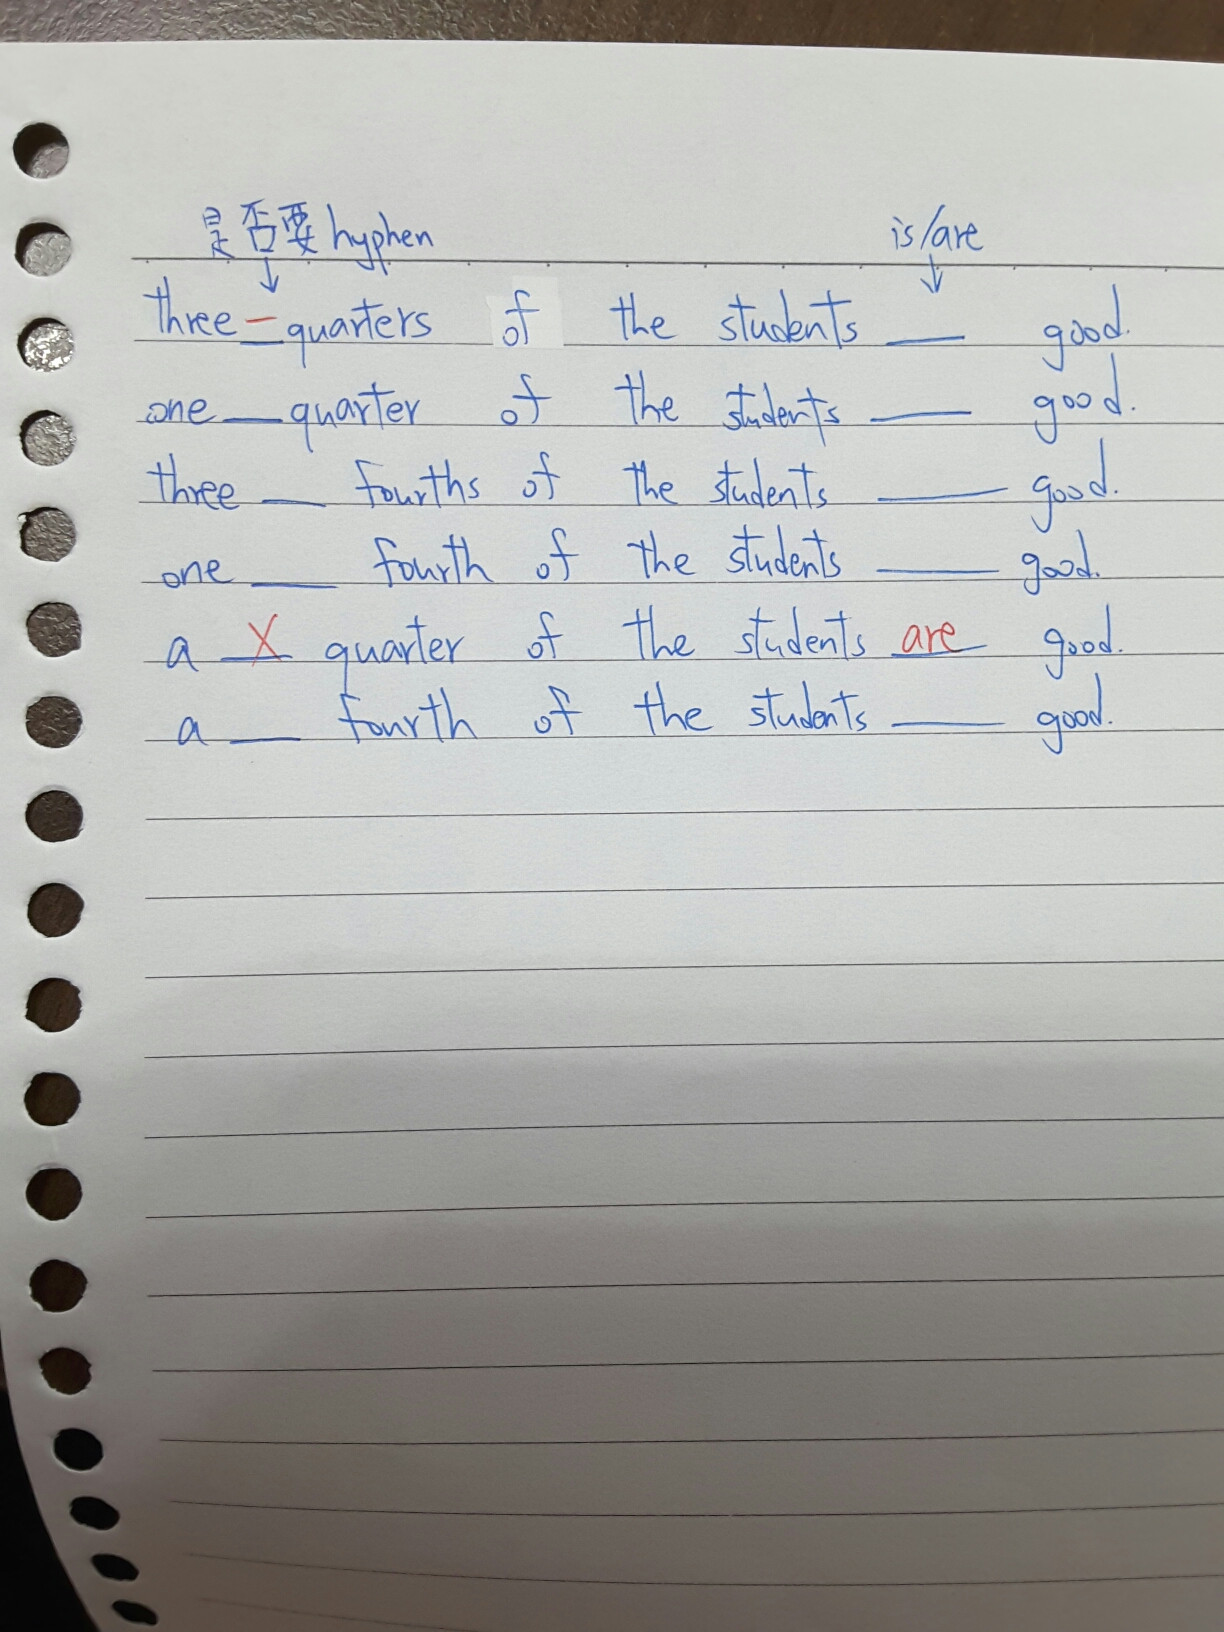 是否要hyphen is/are
three-quarters of the students ___ good.
one ___ quarter of the students ___ good.
three ___ fourths of the students ___ good.
one ___ fourth of the students ___ good.
a X quarter of the students are good.
a ___ fourth of the students ___ good.